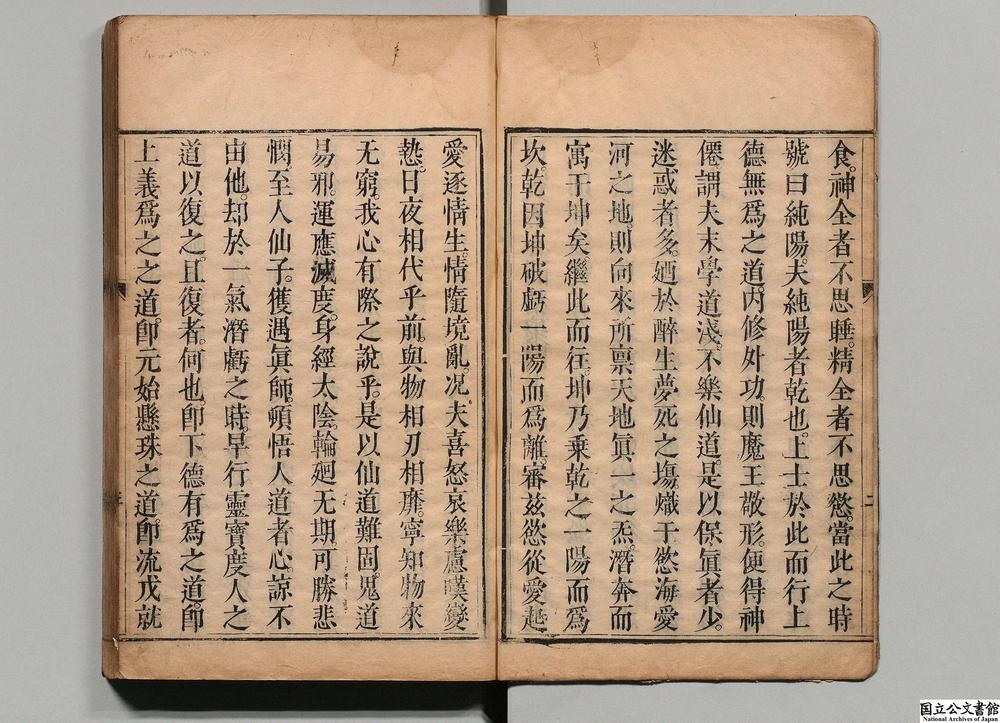 食。神全者不思睡。精全者不思慾。當此之時
號曰純陽。夫純陽者乾也。上士於此而行上
德無爲之道。內修外功。則魔王敬形。便得神
僊。謂夫末學道淺。不樂仙道。是以保眞者少。
迷惑者多。廼於醉生夢死之場。熾于慾海愛
河之地。則向來所禀天地眞一之炁。潛奔而
寓于坤矣。繼此而往。坤乃乗乾之一陽而爲
坎。乾因坤破虧一陽而爲離。審兹慾從愛起
愛逐情生。情隨境亂。况夫喜怒哀樂慮嘆變
慹。日夜相代乎前。與物相刃相靡。寧知物來
无窮。我心有際之說乎。是以仙道難固。鬼道
易邪。運應滅度。身經太陰。輪廻无期。可勝悲
憫。至人仙子。獲遇眞師。頓悟人道者。心諒不
由他。却於一氣潛虧之時。早行靈寶度人之
道以復之。且復者。何也。卽下德有爲之道。卽
上義爲之之道。卽元始懸珠之道。卽流戊就
二
国立公文書館
National Archives of Japan